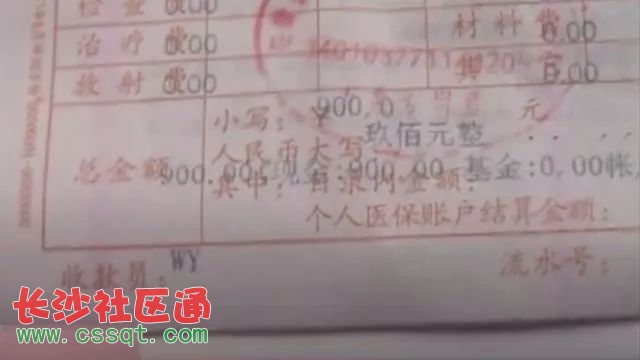 检查费 0.00
治疗费 0.00 材料费 0.00
放射费 0.00 其它 0.00
小写：￥ 900.0 元
人民币大写 玖佰元整
总金额 900.00 现金:900.00 基金:0.00帐
其中：目录内金额：
个人医保账户结算金额：
收款员：WY 流水号：
长沙社区通
www.cssqt.com